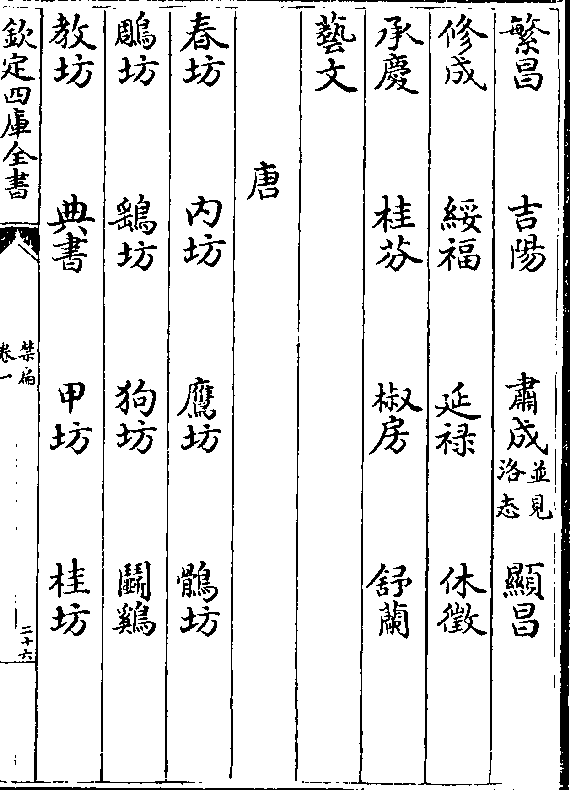 繁昌 吉陽 肅成並見洛志 顯昌
修成 綏福 延禄 休徵
承慶 桂芬 椒房 舒蘭
藝文
唐
春坊 内坊 鷹坊 鶻坊
鵰坊 鷂坊 狗坊 鬬鷄
教坊 典書 甲坊 桂坊
欽定四庫全書
禁扁
卷一
二十六